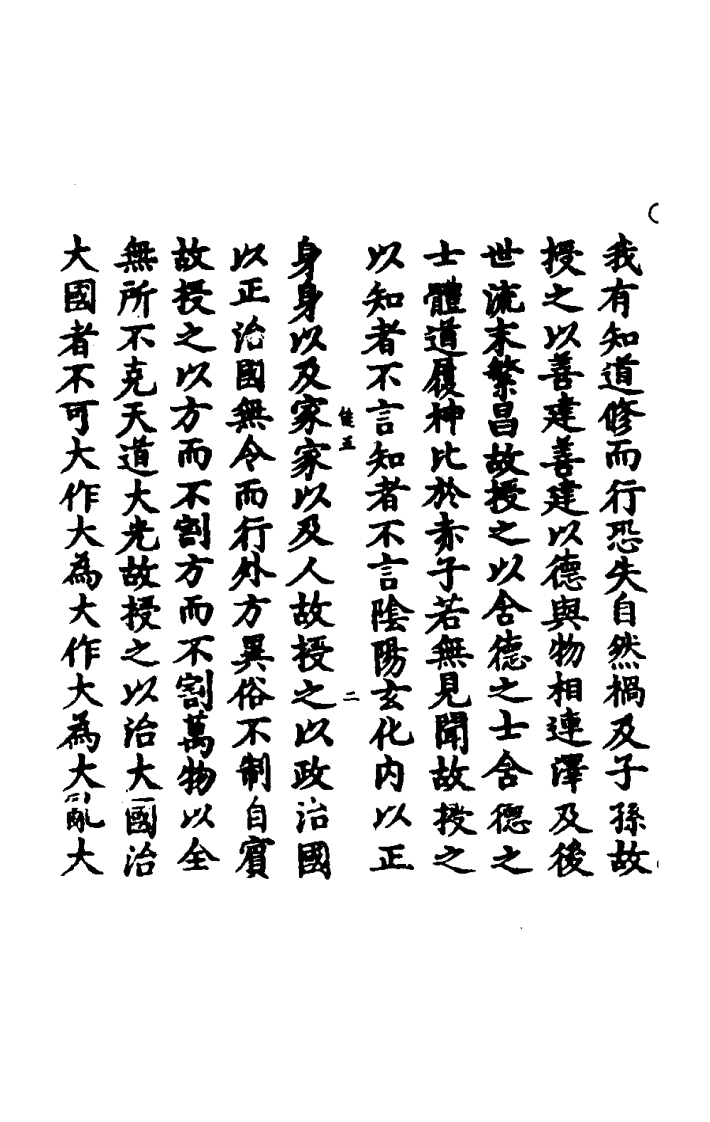 我有知道修而行恐失自然禍及子孫故
授之以善建善建以德與物相連澤及後
世流末繁昌故授之以含德之士含德之
士體道履神比於赤子若無見聞故授之
以知者不言知者不言陰陽玄化内以正
能五
二
身身以及家家以及人故授之以政治國
以正治國無令而行外方異俗不制自賓
故授之以方而不割方而不割萬物以全
無所不克天道大光故授之以治大國治
大國者不可大作大為大作大為大亂大